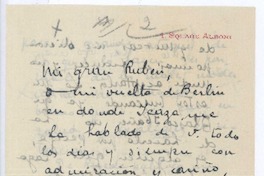 2
SQUARE ALBONI
Mi gran Rubén,
a mi vuelta de Berlin
en donde Icaza que
ha hablado de V. todo
los dias y siempre con
admiración y cariño,